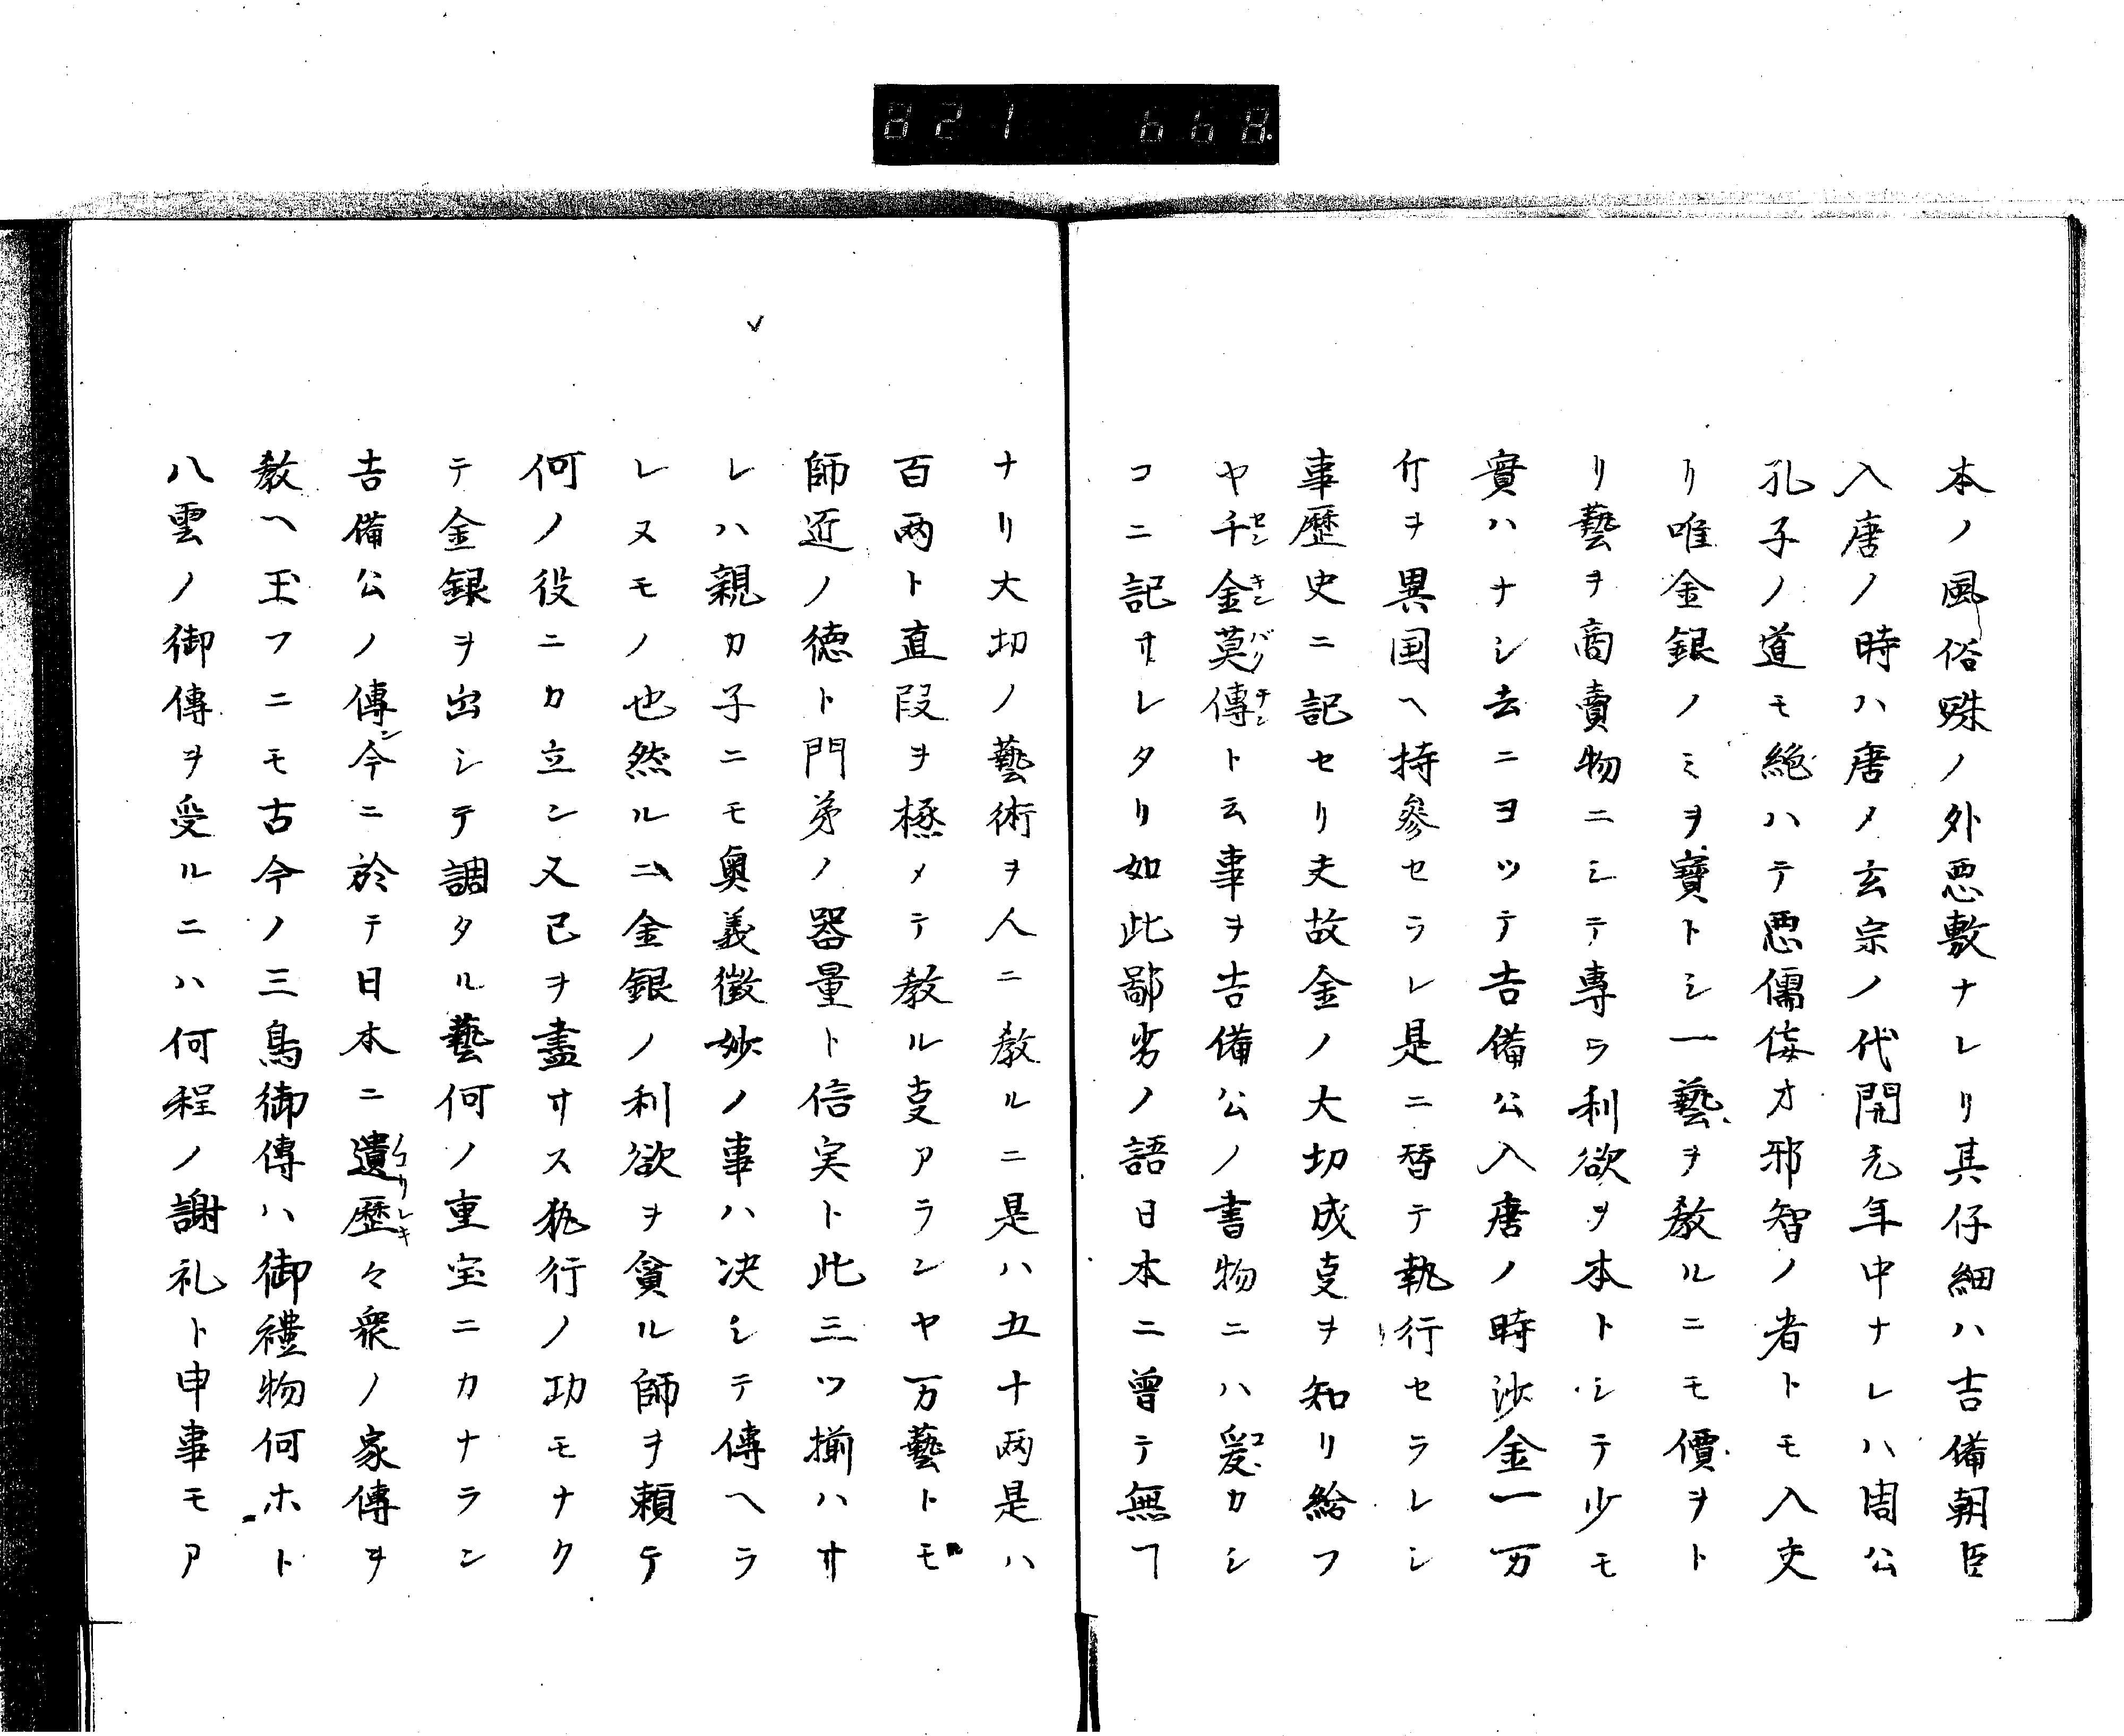 821 668
本ノ風俗殊ノ外悪敷ナレリ其仔細ハ吉備朝臣
入唐ノ時ハ唐ノ玄宗ノ代開元年中ナレハ周公
孔子ノ道モ絶ハテ悪儒侫才邪智ノ者トモ入交
リ唯金銀ノミヲ寳トシ一藝ヲ教ルニモ價ヲト
リ藝ヲ商賣物ニシテ專ラ利欲ヲ本トシテ少モ
實ハナシ去ニヨツテ吉備公入唐ノ時沙金一万
斤ヲ異国ヘ持參セラレ是ニ替テ執行セラレシ
事歴史ニ記セリ夫故金ノ大切成叓ヲ知リ給フ
ヤ千金莫傳ト云事ヲ吉備公ノ書物ニハ爰カシ
コニ記サレタリ如此鄙劣ノ語日本ニ曾テ無ヿ
ナリ大切ノ藝術ヲ人ニ教ルニ是ハ五十両是ハ
百両ト直段ヲ極メテ教ル叓アランヤ万藝トモ
師近ノ徳ト門弟ノ器量ト信実ト此三ツ揃ハサ
レハ親カ子ニモ奥義微妙ノ事ハ决シテ傳ヘラ
レヌモノ也然ルニ金銀ノ利欲ヲ貪ル師ヲ頼テ
何ノ役ニカ立ン又己ヲ盡サス執行ノ功モナク
テ金銀ヲ出シテ調タル藝何ノ重宝ニカナラン
吉備公ノ傳今ニ於テ日本ニ遺歴々衆ノ家傳ヲ
教ヘ玉フニモ古今ノ三鳥御傳ハ御禮物何ホト
八雲ノ御傳ヲ受ルニハ何程ノ謝礼ト申事モア